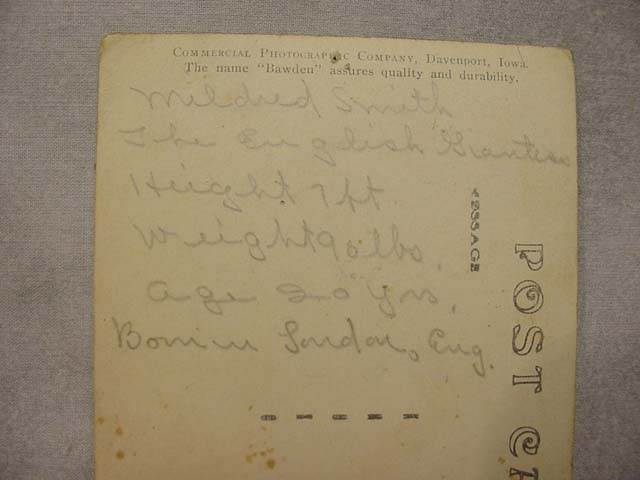 COMMERCIAL PHOTOGRAPHIC COMPANY, Davenport, Iowa.
The name "Bawden" assures quality and durability.
Mildred Smith
The English Giantess
Height 7 ft
Weight 90 lbs.
age 20 yrs,
Born in London, Eng.
MESSAGE
POST CA